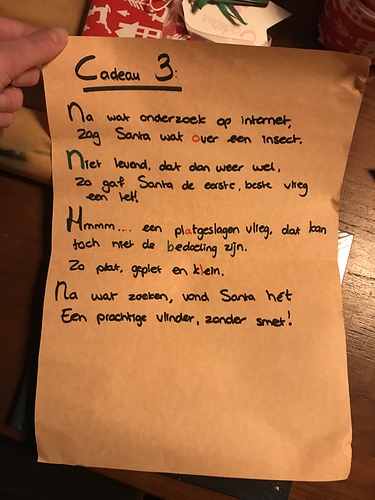 Cadeau 3:
Na wat onderzoek op internet,
Zag Santa wat over een insect.
Niet levend, dat dan weer wel,
Zo gaf Santa de eerste, beste vlieg
een lel!
Hmmm.... een platgeslagen vlieg, dat kan
toch niet de bedoeling zijn.
Zo plat, geplet en klein.
Na wat zoeken, vond Santa hét
Een prachtige vlinder, zonder smet!